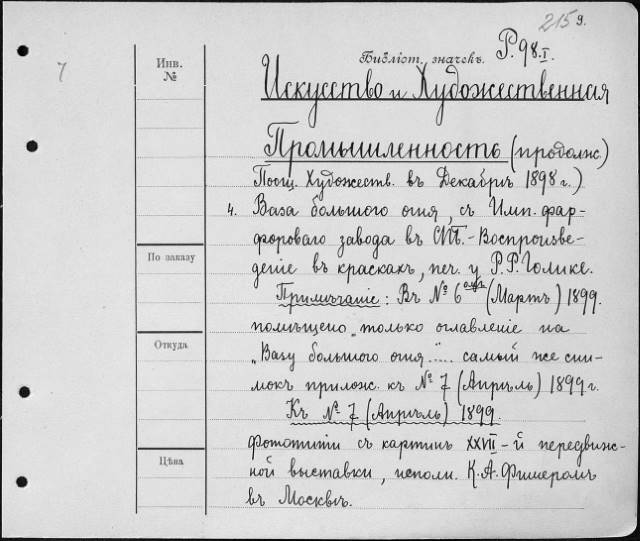 215 9.
7
Инв.
№
Библіот. значекъ. Р. 98. I.
Искусство и Художественная
Промышленность (продолж.)
Посщ. Художеств. въ Декабрѣ 1898 г.)
4. Ваза большого огня, съ Имп. фар-
фороваго завода въ СПѣ. - Воспроизве-
По заказу
деніе въ краскахъ, печ. у Р. Р. Голике.
Примѣчаніе: Въ № 6 (Мартъ) 1899.
помѣщено „только оглавленіе на
Откуда
„Вазу большого огня"..... самый же сни-
мокъ прилож. къ № 7 (Апрѣль) 1899 г.
Къ № 7 (Апрѣль) 1899.
фототипіи съ картинъ XXVII-й передвиж-
Цѣна
ной выставки, исполн. К. А. Фишеромъ
въ Москвѣ.